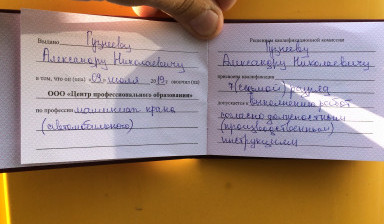 Выдано Грузеву
Александру Николаевичу
в том, что он (она) «09» июля 2019г. окончил (а)
ООО «Центр профессионального образования»
по профессии машинист крана
(автомобильного)
Решением квалификационной комиссии
Грузеву
Александру Николаевичу
присвоена квалификация
7 (седьмой) разряд
допускается к выполнению работ
согласно должностным
(производственным)
инструкциям